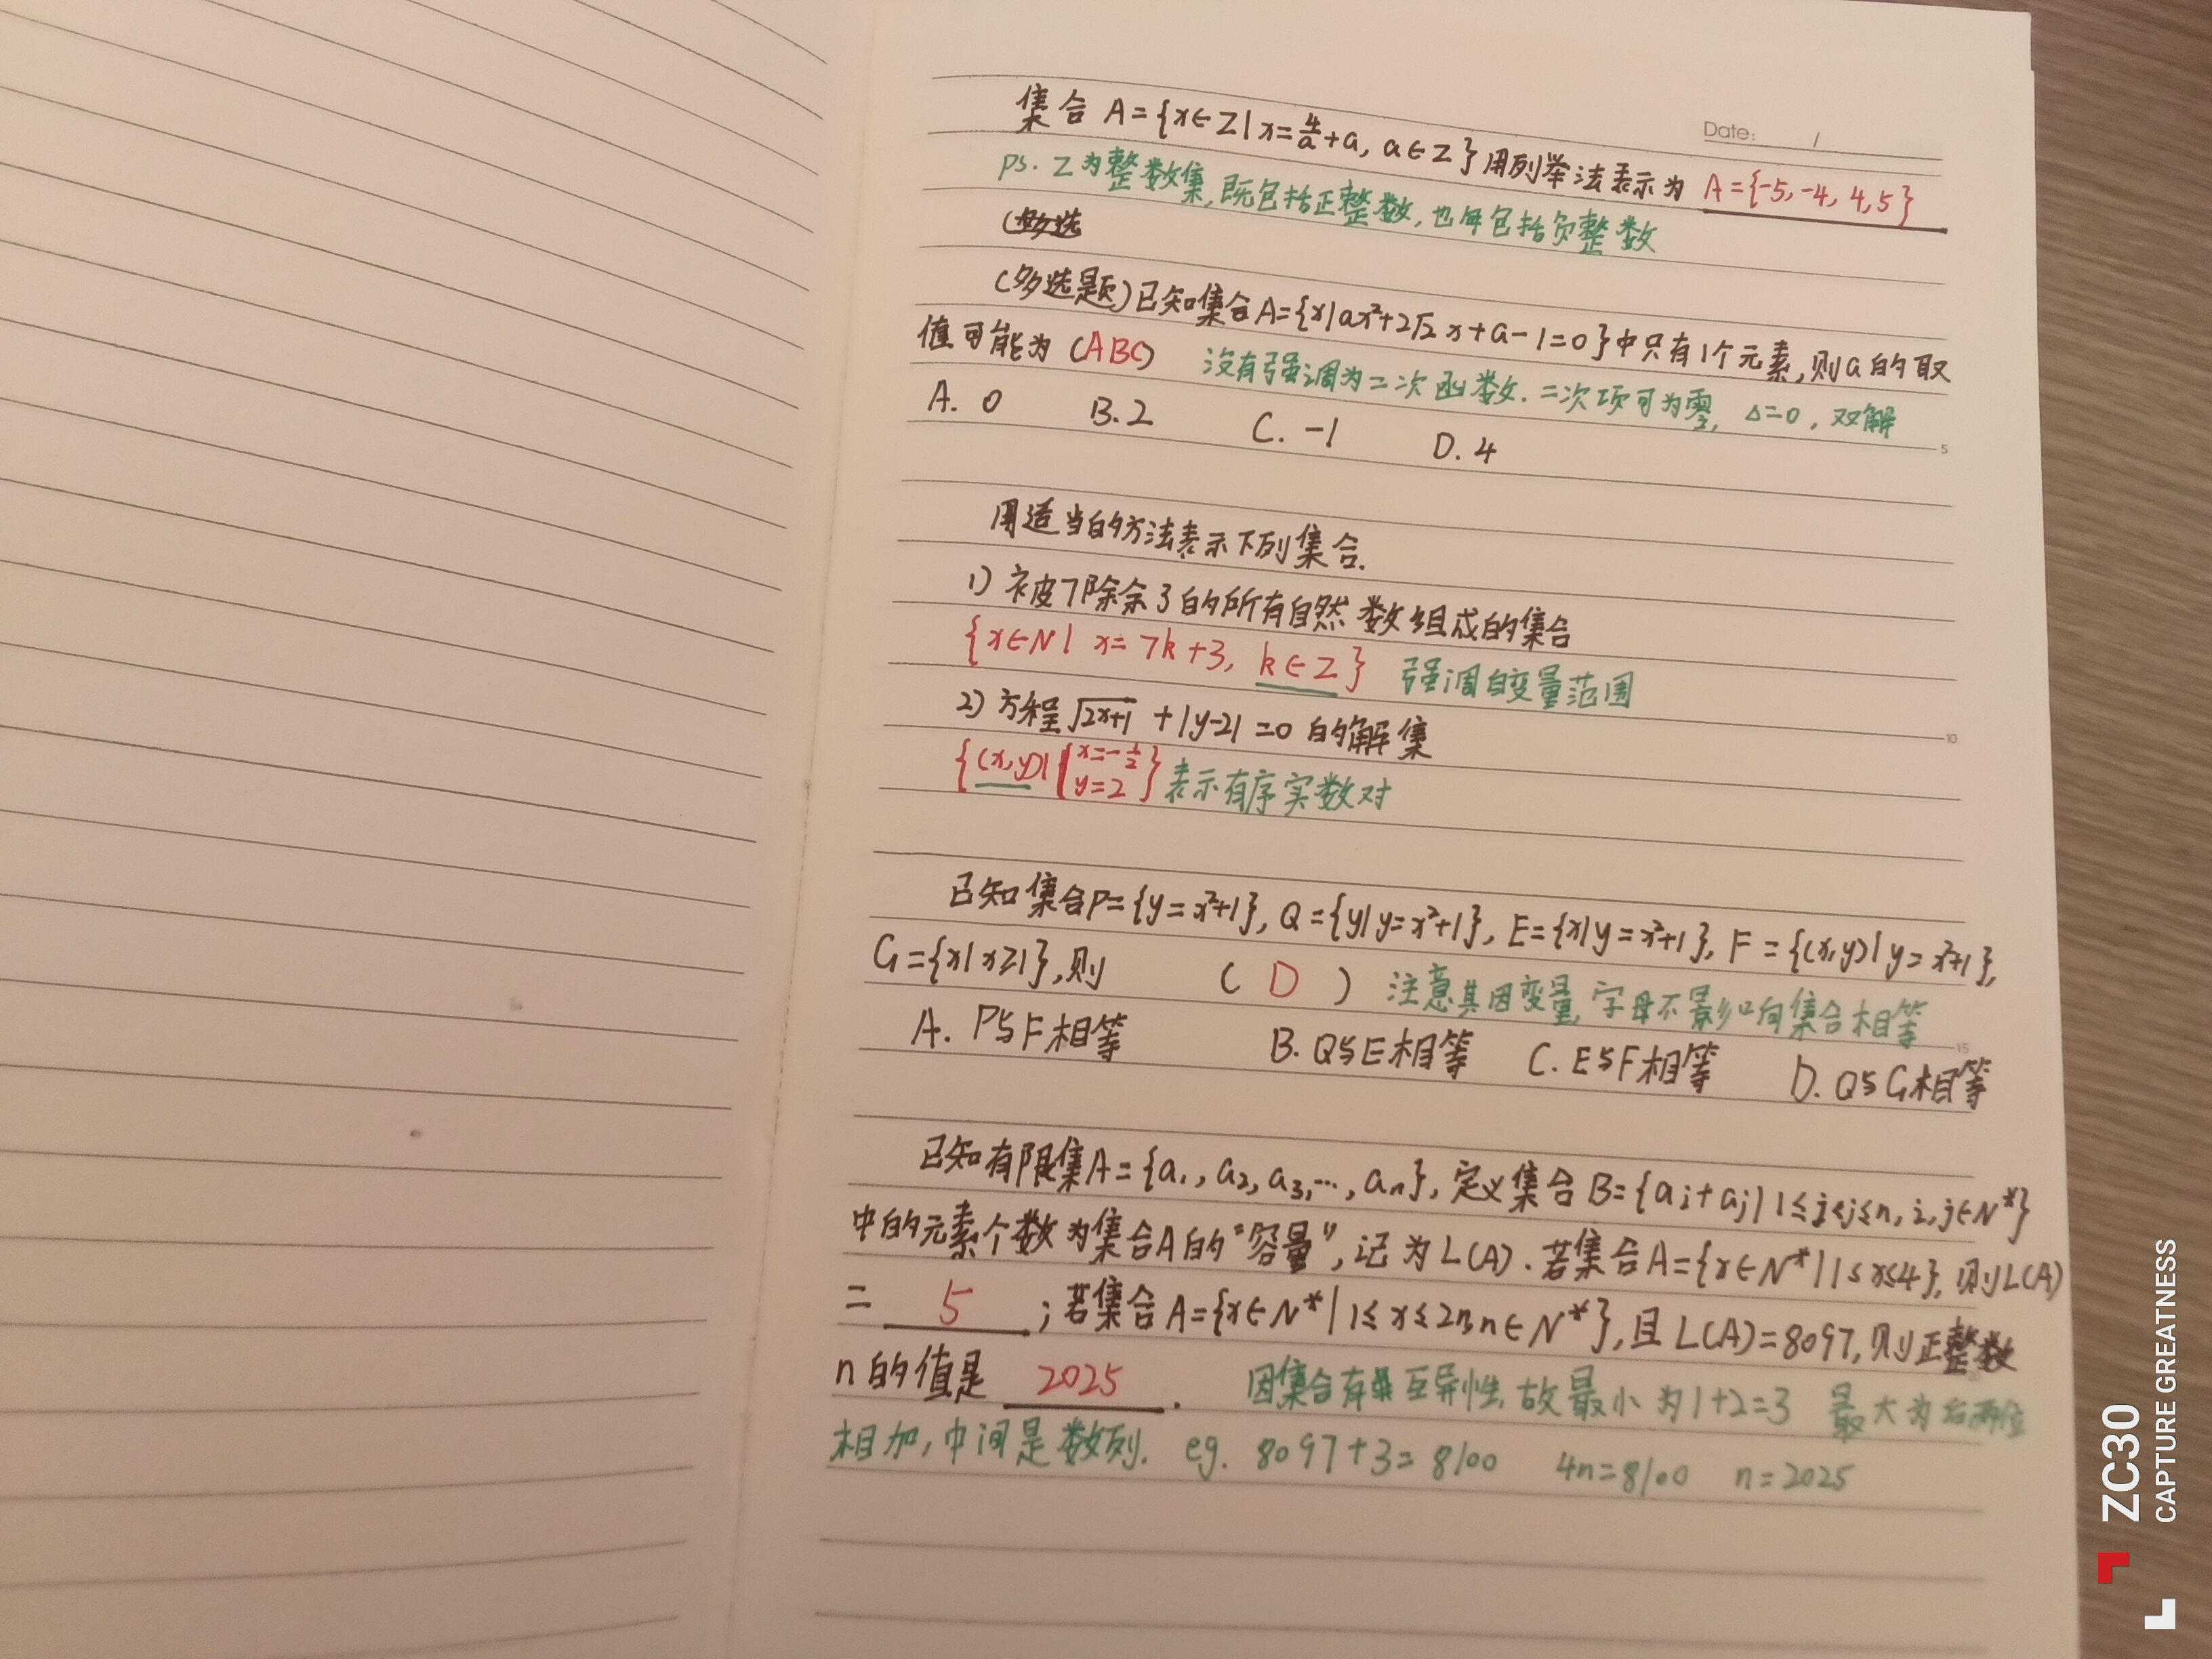 Date: /
集合 A={x∈Z|x=4/a+a, a∈Z}用列举法表示为 A={-5,-4, 4,5}
ps. Z为整数集,既包括正整数,也包括负整数
(多选
(多选题)已知集合A={x|ax²+2√2 x+a-1=0}中只有1个元素,则a的取
值可能为 (ABC) 没有强调为二次函数.二次项可为零, Δ=0, 双解
A. 0 B. 2 C. -1 D. 4
5
用适当的方法表示下列集合.
1) 被7除余3的所有自然数组成的集合
{x∈N| x= 7k+3, k∈Z} 强调自变量范围
2) 方程√2x+1 +|y-2|=0 的解集
10
{(x,y)|{x=-1/2 y=2} 表示有序实数对
已知集合P={y=x²+1}, Q={y|y=x²+1}, E={x|y=x²+1}, F={(x,y)|y=x²+1},
G={x|x≥1},则 ( D ) 注意其因变量,字母不影响集合相等
A. P与F相等 B. Q与E相等 C. E与F相等 D. Q与G相等
15
已知有限集A={a₁, a₂, a₃,…, aₙ}, 定义集合B={aᵢ+aⱼ|1≤i<j≤n, i,j∈N*}
中的元素个数为集合A的“容量”,记为L(A). 若集合A={x∈N*|1≤x≤4}, 则L(A)
= 5 ;若集合A={x∈N*|1≤x≤2n,n∈N*},且L(A)=8097,则正整数
n的值是 2025 . 因集合有互异性,故最小为1+2=3 最大为后两位
相加,中间是数列. eg. 8097+3=8100 4n=8100 n=2025
ZC30
CAPTURE GREATNESS